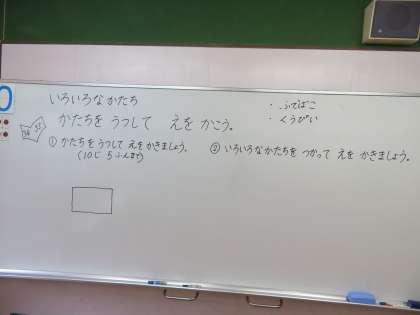 いろいろなかたち
かたちを うつして えを かこう。
① かたちを うつして えを かきましょう。
(10じ 5ふんまで)
・ふでばこ
・くうぴい
② いろいろなかたちを つかって えを かきましょう。